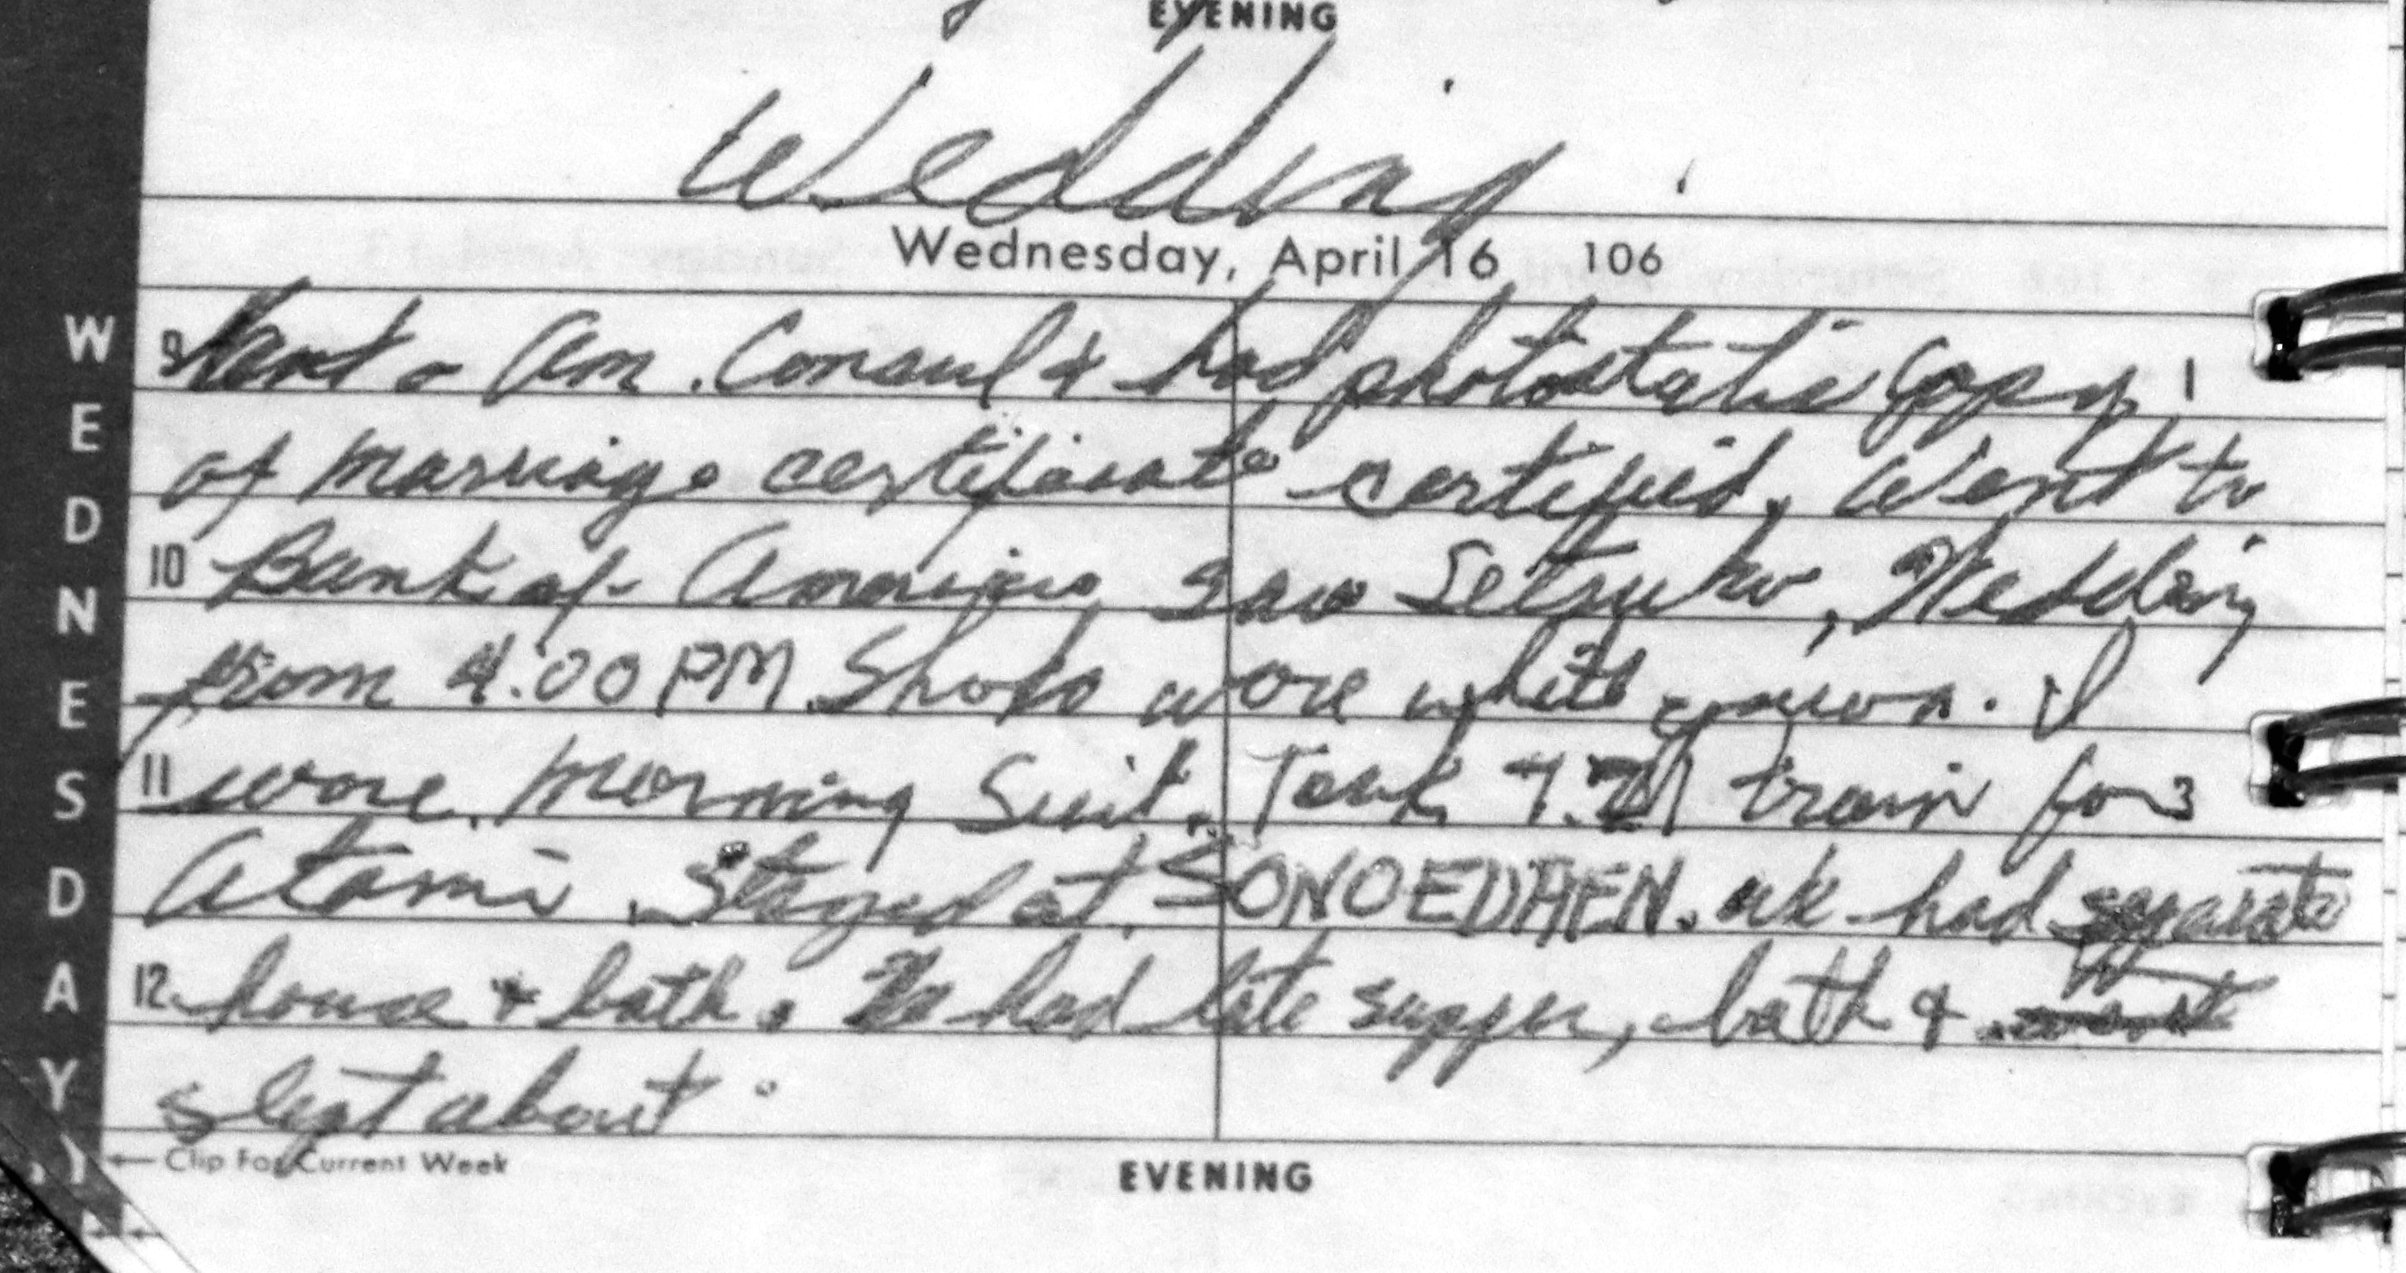 EVENING
Wedding
Wednesday, April 16 106
W
E
D
N
E
S
D
A
Y
9 Went to Am. Consul & had photostatic copy 1
of marriage certificate certified. Went to
10 Bank of America saw Setsuko, Wedding
from 4.00 PM. Shoko wore white gown. I
11 wore morning suit. Took 7.21 train for 3
Atami. Stayed at SONOEDHEN. We had separate
12 house & bath. We had late supper, bath &
slept about
← Clip For Current Week
EVENING